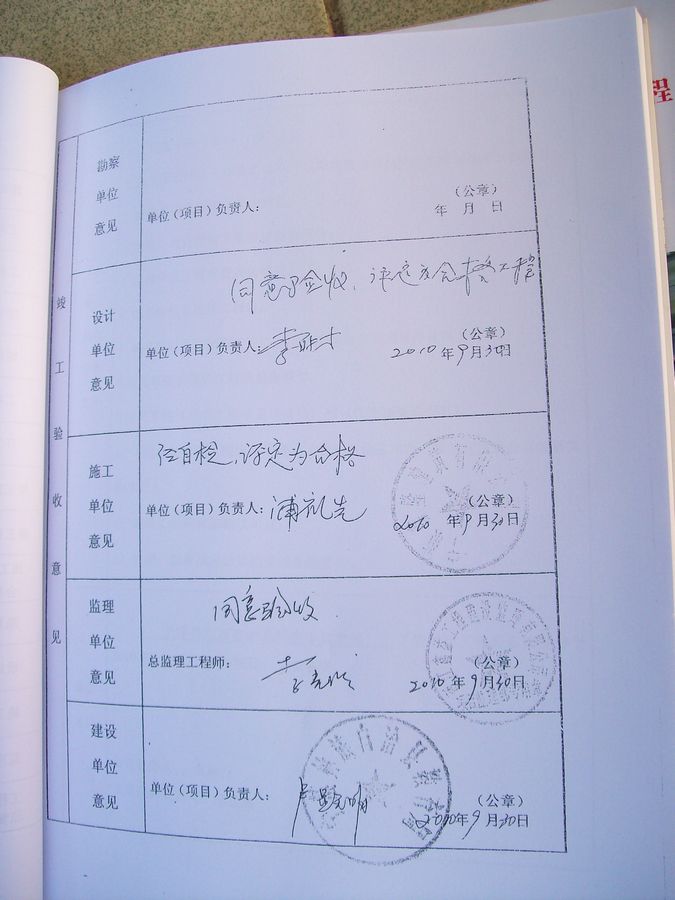 程
竣工验收意见
勘察
单位
意见
单位（项目）负责人：
（公章）
年 月 日
设计
单位
意见
同意验收，评定为合格工程
单位（项目）负责人：
（公章）
2010年9月30日
施工
单位
意见
经自检，评定为合格
单位（项目）负责人：
（公章）
2010年9月30日
监理
单位
意见
同意验收
总监理工程师：
（公章）
2010年9月30日
建设
单位
意见
单位（项目）负责人：
（公章）
2010年9月30日